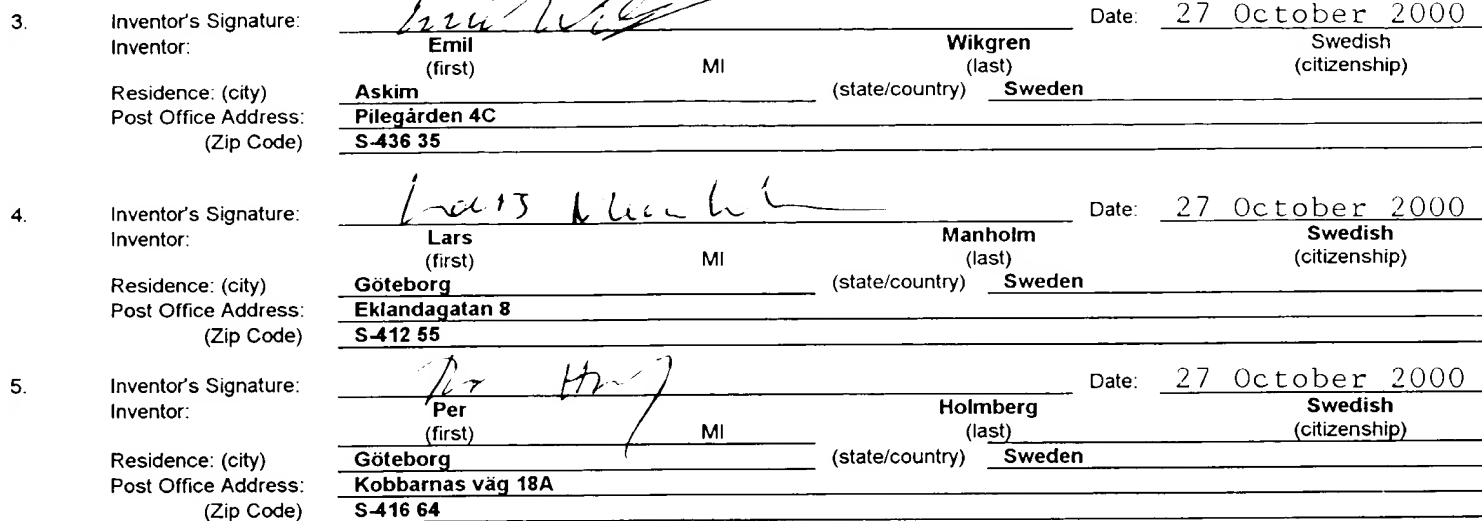 3. Inventor's Signature: Emil Wik Date: 27 October 2000
Inventor: Emil Wikgren Swedish
(first) MI (last) (citizenship)
Residence: (city) Askim (state/country) Sweden
Post Office Address: Pilegården 4C
(Zip Code) S-436 35
4. Inventor's Signature: Lars Manholm Date: 27 October 2000
Inventor: Lars Manholm Swedish
(first) MI (last) (citizenship)
Residence: (city) Göteborg (state/country) Sweden
Post Office Address: Eklandagatan 8
(Zip Code) S-412 55
5. Inventor's Signature: Per Date: 27 October 2000
Inventor: Per Holmberg Swedish
(first) MI (last) (citizenship)
Residence: (city) Göteborg (state/country) Sweden
Post Office Address: Kobbarnas väg 18A
(Zip Code) S-416 64